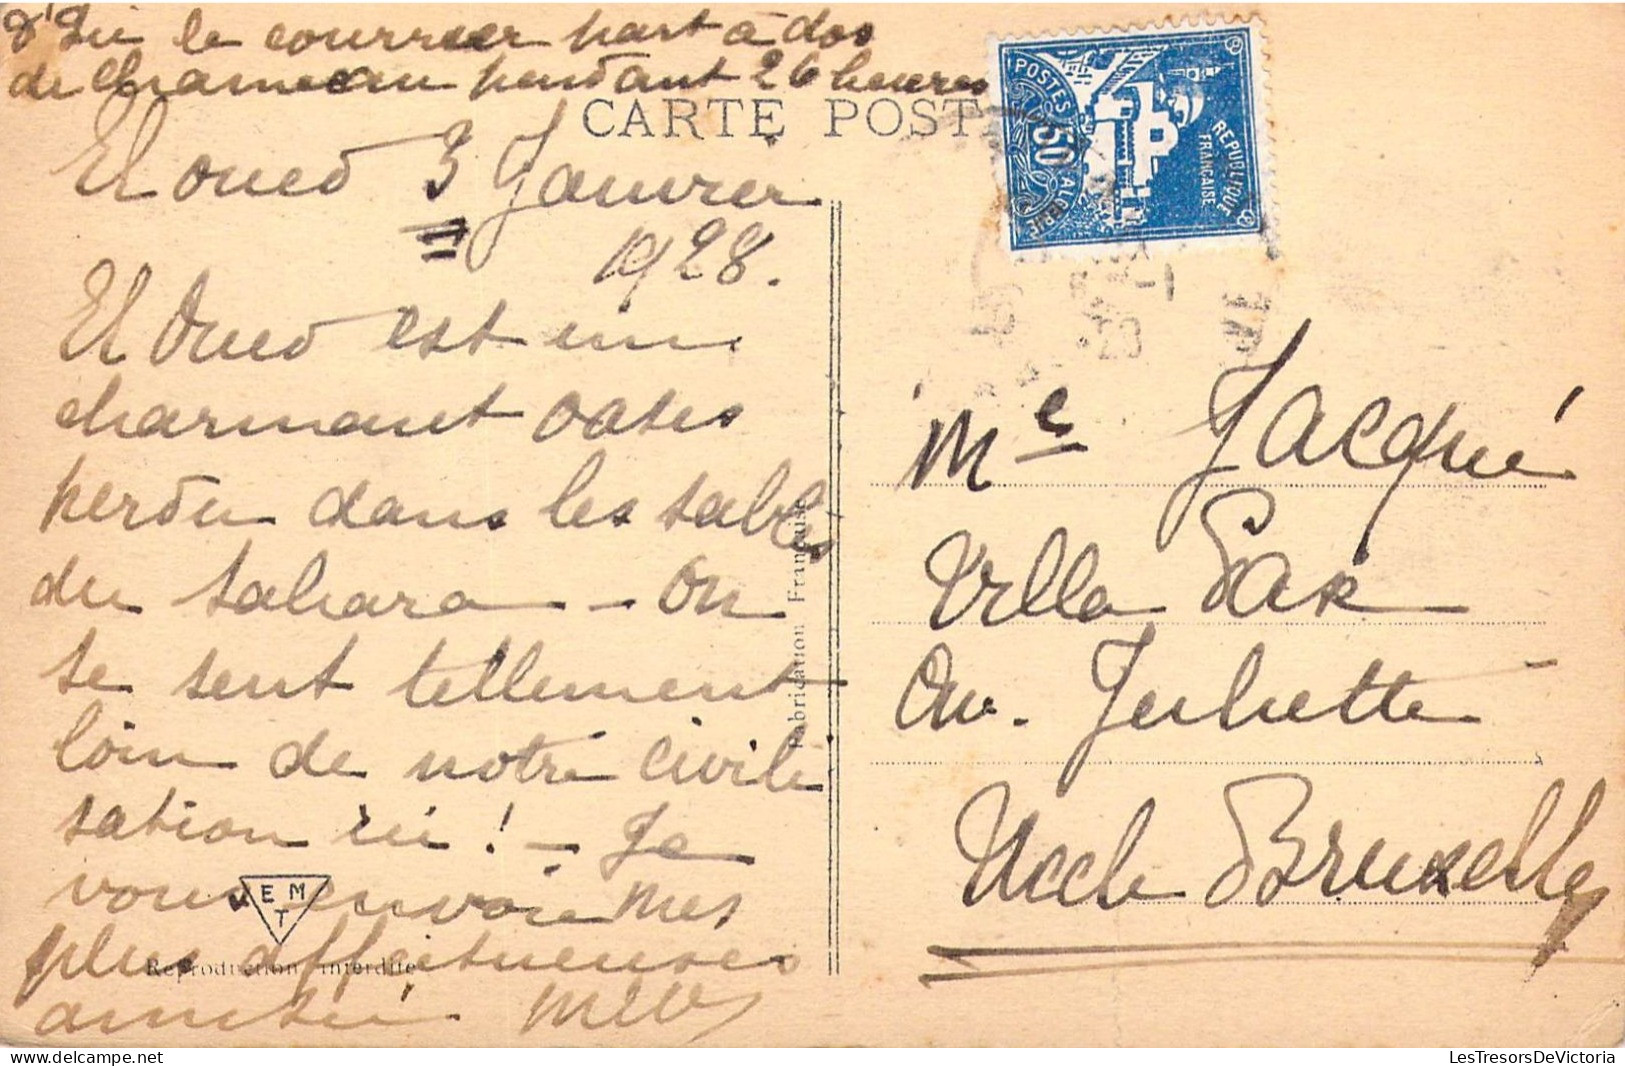 d'ici le courrier part à dos
de chameau pendant 26 heures
CARTE POST
El oued 3 Janvier
1928.
El Oued est un
charmant oasis
perdu dans les sables
du sahara — On
se sent tellement
loin de notre civili
sation ici ! — Je
vous envoie mes
plus affectueuses
amitiés
E M
T
Reproduction interdite
Fabrication Française
POSTES ALGERIE
50
REPUBLIQUE
FRANÇAISE
Me Jacqué
Villa Pax
Av. Juliette
Uccle Bruxelles
LesTresorsDeVictoria